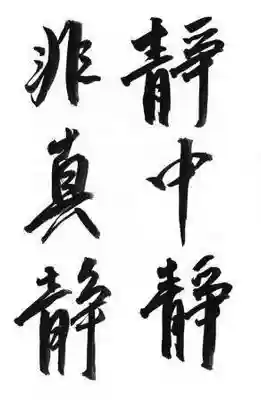 靜中靜
非真静